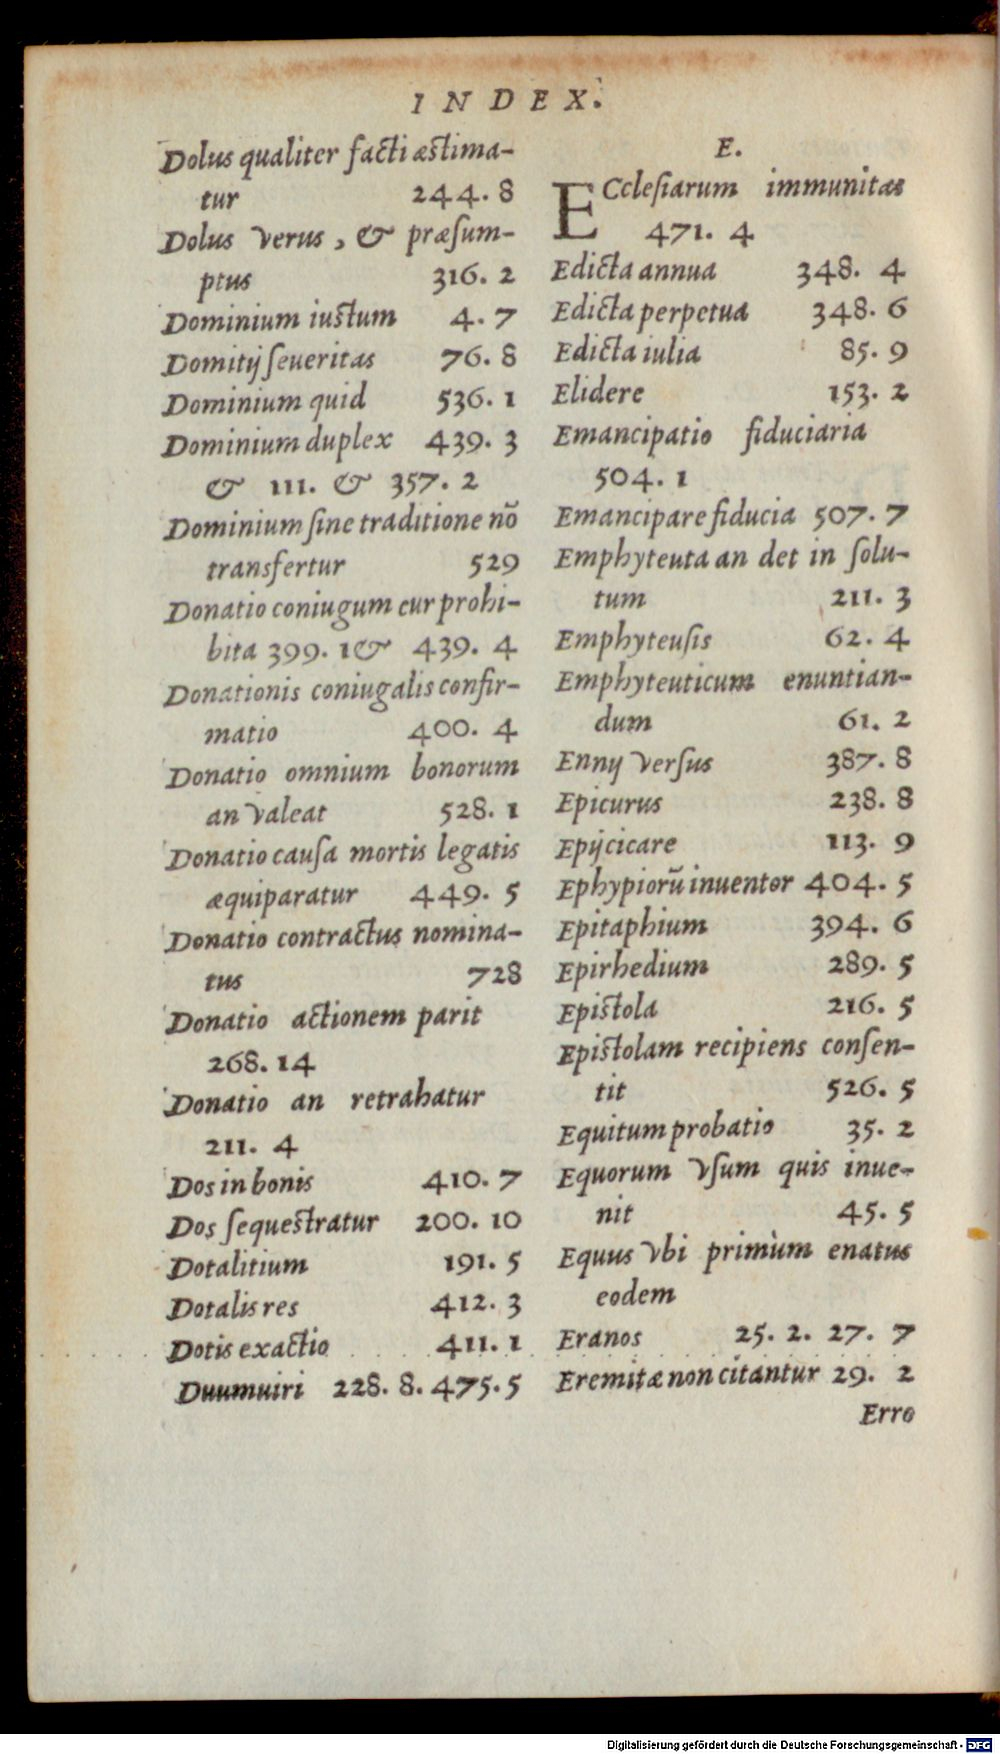 INDEX.
Dolus qualiter facti æstima-
tur 244. 8
Dolus verus, & præsum-
ptus 316. 2
Dominium iustum 4. 7
Domitij seueritas 76. 8
Dominium quid 536. 1
Dominium duplex 439. 3
& 111. & 357. 2
Dominium sine traditione nõ
transfertur 529
Donatio coniugum cur prohi-
bita 399. 1 & 439. 4
Donationis coniugalis confir-
matio 400. 4
Donatio omnium bonorum
an valeat 528. 1
Donatio causa mortis legatis
æquiparatur 449. 5
Donatio contractus nomina-
tus 728
Donatio actionem parit
268. 14
Donatio an retrahatur
211. 4
Dos in bonis 410. 7
Dos sequestratur 200. 10
Dotalitium 191. 5
Dotalis res 412. 3
Dotis exactio 411. 1
Duumuiri 228. 8. 475. 5
E.
ECclesiarum immunitas
471. 4
Edicta annua 348. 4
Edicta perpetua 348. 6
Edicta iulia 85. 9
Elidere 153. 2
Emancipatio fiduciaria
504. 1
Emancipare fiducia 507. 7
Emphyteuta an det in solu-
tum 211. 3
Emphyteusis 62. 4
Emphyteuticum enuntian-
dum 61. 2
Ennij versus 387. 8
Epicurus 238. 8
Epijcicare 113. 9
Ephypiorũ inuentor 404. 5
Epitaphium 394. 6
Epirhedium 289. 5
Epistola 216. 5
Epistolam recipiens consen-
tit 526. 5
Equitum probatio 35. 2
Equorum vsum quis inue-
nit 45. 5
Equus vbi primùm enatus
eodem
Eranos 25. 2. 27. 7
Eremitæ non citantur 29. 2
Erro
Digitalisierung gefördert durch die Deutsche Forschungsgemeinschaft - DFG